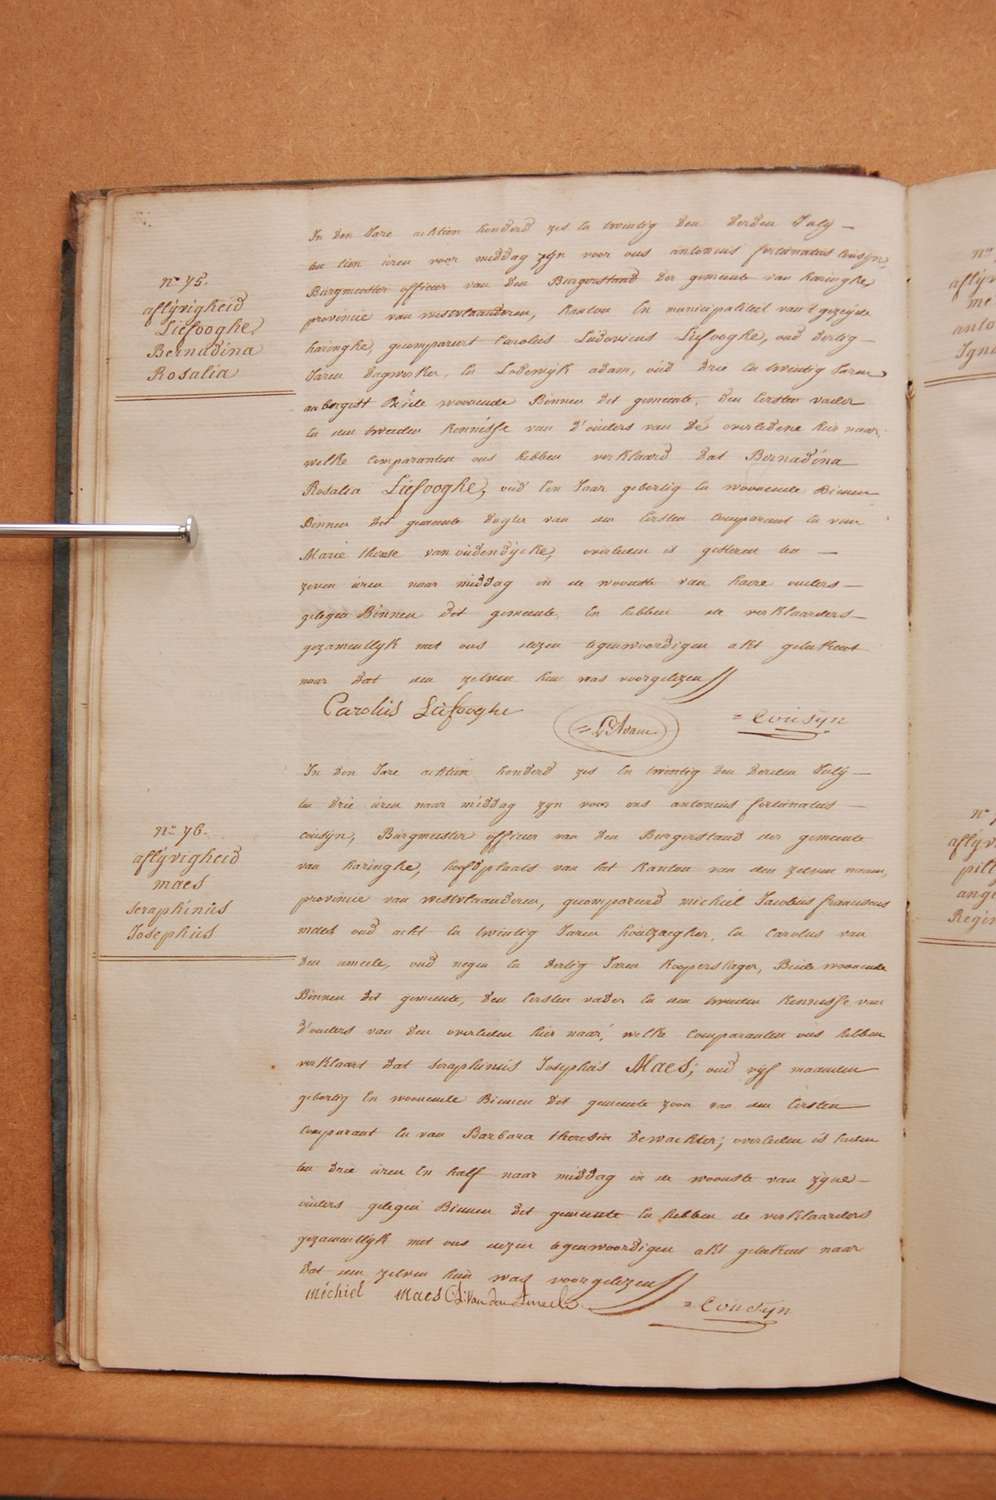 N.º 75.
aflijvigheid
Liefooghe,
Bernadina
Rosalia
In den Jare achtien honderd zes en twintig den derden Julij —
ten tien uren voor middag zijn voor ons antonius fortunatus Cousijn,
Burgmeester officier van den Burgerstand der gemeente van haringhe
provincie van westvlaanderen, kanton en municipaliteit van 't gezeijde
haringhe, gecompareert Carolus Ludovicus Liefooghe, oud dertig —
Jaren dagwerker, en Lodewijk adam, oud drie en twintig Jaren
Beide woonende Binnen dit gemeente, den eersten vader
en den tweeden kennisse van d'ouders van de overledene hier naar,
welke comparanten ons hebben verklaard dat Bernadina
Rosalia Liefooghe, oud een Jaar gebortig en woonende Binnen
Binnen dit gemeente dogter van den eersten comparant en van
Marie therese van oudendijcke, overleden is gisteren ten —
zeven uren naar middag in de wooniste van haere ouders —
gelegen Binnen dit gemeente, En hebben de verklaarders —
gezamentlijk met ons dezen tegenwoordigen akt geteekent
naar dat den zelven hun was voorgelezen
Carolus Liefooghe = L Adam = Cousijn
N.º 76.
aflijvigheid
maes
seraphinus
Josephus
In den Jare achtien honderd zes en twintig den derden Julij —
ten drie uren naar middag zijn voor ons antonius fortunatus —
cousijn, Burgmeester officier van den Burgerstand der gemeente
van haringhe, hoofdplaats van het kanton van den zelven naam,
provincie van westvlaanderen, gecompareerd michiel Jacobus franciscus
maes oud acht en twintig Jaren houtzaegher, en Carolus van
den ameele, oud negen en dertig Jaren koopersleger, Beide woonende
Binnen dit gemeente, den eersten vader en den tweeden kennisse van
d'ouders van den overleden hier naar, welke comparanten ons hebben
verklaart dat seraphinus Josephus Maes, oud vijf maenden
gebortig en woonende Binnen dit gemeente zoon van den eersten
comparant en van Barbara theresia Dewachter, overleden is heden
ten drie uren en half naar middag in de wooniste van zijne —
ouders gelegen Binnen dit gemeente en hebben de verklaarders
gezamentlijk met ons dezen tegenwoordigen akt geteekent naar
dat den zelven hun was voorgelezen
michiel maes C L Van den Ameele = Cousijn